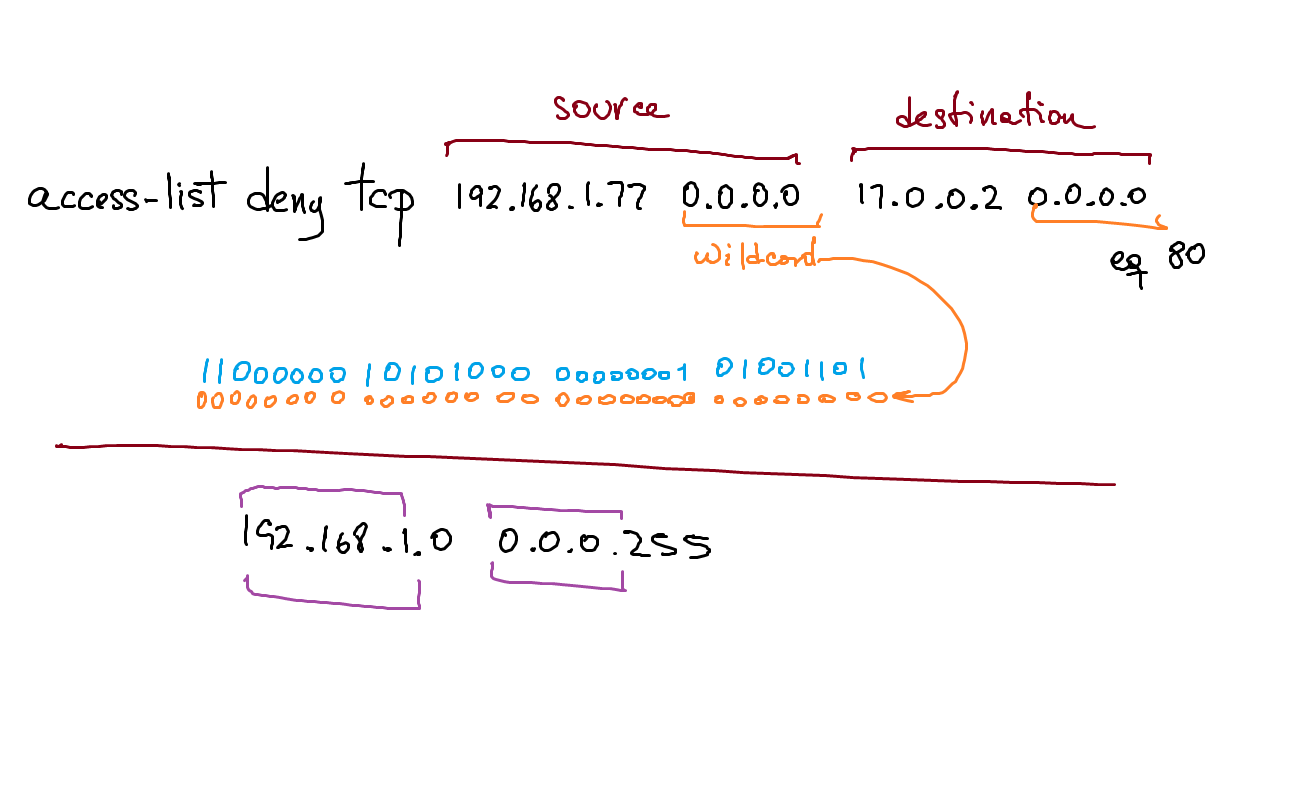 source destination
access-list deny tcp 192.168.1.77 0.0.0.0 17.0.0.2 0.0.0.0
wildcard
eq 80
11000000 10101000 00000001 01001101
00000000 00000000 00000000 00000000
192.168.1.0 0.0.0.255